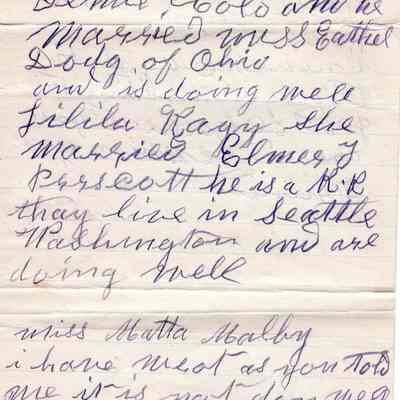 Colo and he
Married miss Eathel
Dodg of Ohio
and is doing well
Lilila Kagy she
married Elmer J
Prrscott he is a R.R
thay live in Seattle
Washington and are
doing well
miss Matta Malby
i have meot as you told
me it is not